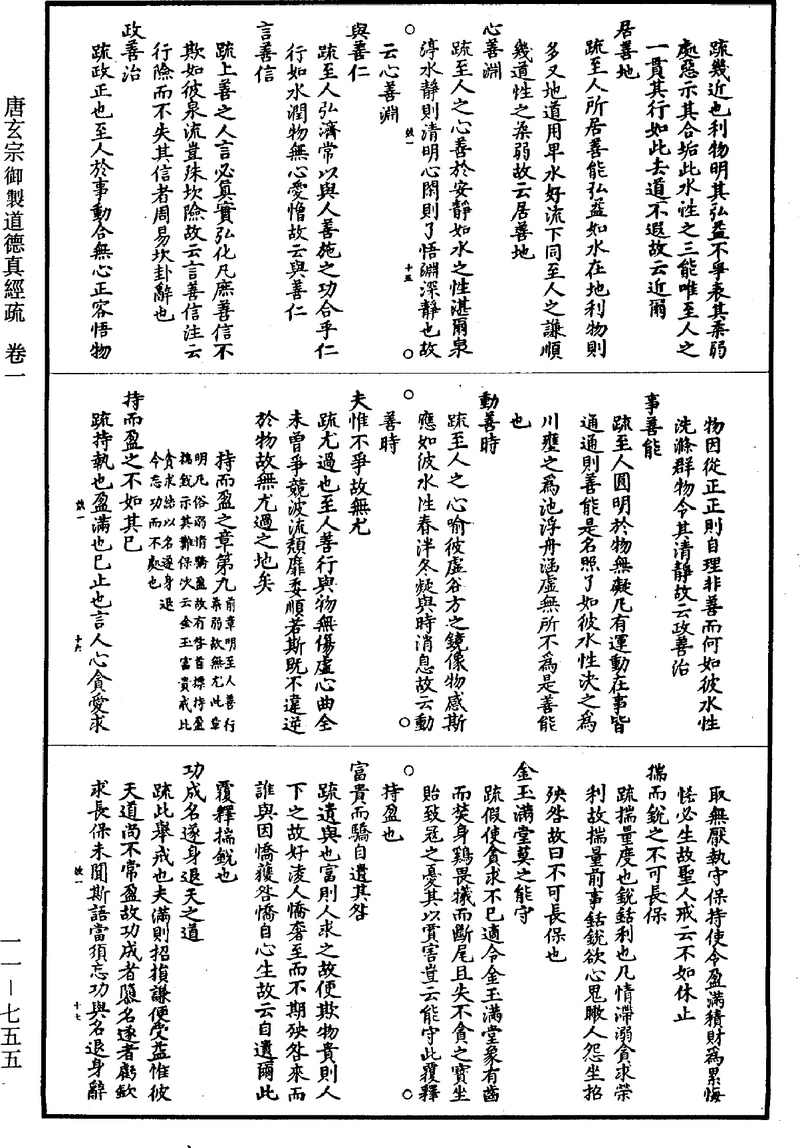 疏幾近也利物明其弘益不爭表其柔弱
處惡示其合垢此水性之三能唯至人之
一貫其行如此去道不遐故云近爾
居善地
疏至人所居善能弘益如水在地利物則
多又地道用卑水好流下同至人之謙順
幾道性之柔弱故云居善地
心善淵
疏至人之心善於安靜如水之性湛爾泉
渟水靜則清明心閑則了悟淵深靜也故
云心善淵
與善仁
疏至人弘濟常以與人善施之功合乎仁
行如水潤物無心愛憎故云與善仁
言善信
疏上善之人言必真實弘化凡庶善信不
欺如彼泉流豈殊坎險故云言善信注云
行險而不失其信者周易坎卦辭也
政善治
疏政正也至人於事動合無心正容悟物
物因從正正則自理非善而何如彼水性
洗滌群物令其清靜故云政善治
事善能
疏至人圓明於物無礙凡有運動在事皆
通通則善能是名照了如彼水性決之為
川壅之為池浮舟涵虛無所不為是善能
也
動善時
疏至人之心喻彼虛谷方之鏡像物感斯
應如彼水性春泮冬凝與時消息故云動
善時
夫惟不爭故無尤
疏尤過也至人善行與物無傷虛心曲全
未曾爭競波流頹靡委順若斯既不違逆
於物故無尤過之地矣
持而盈之章第九
前章明至人善行
柔弱故無尤此章
明凡俗溺情驕盈故有咎首標持盈
揣銳示其難保次云金玉富貴戒此
貪求結以名遂身退
令忘功而不處也
持而盈之不如其已
疏持執也盈滿也已止也言人心貪愛求
取無厭執守保持使令盈滿積財為累悔
恡必生故聖人戒云不如休止
揣而銳之不可長保
疏揣量度也銳銛利也凡情滯溺貪求榮
利故揣量前事銛銳欲心鬼瞰人怨坐招
殃咎故曰不可長保也
金玉滿堂莫之能守
疏假使貪求不已適令金玉滿堂象有齒
而焚身雞畏犧而斷尾且失不貪之寶坐
貽致寇之憂其以賈害豈云能守此覆釋
持盈也
富貴而驕自遺其咎
疏遺與也富則人求之故便欺物貴則人
下之故好淩人憍奢至而不期殃咎來而
誰與因憍獲咎憍自心生故云自遺爾此
覆釋揣銳也
功成名遂身退天之道
疏此舉戒也夫滿則招損謙便受益惟彼
天道尚不常盈故功成者隳名遂者虧欲
求長保未聞斯語當須忘功與名退身辭
唐玄宗御製道德真經疏 卷一
一一—七五五